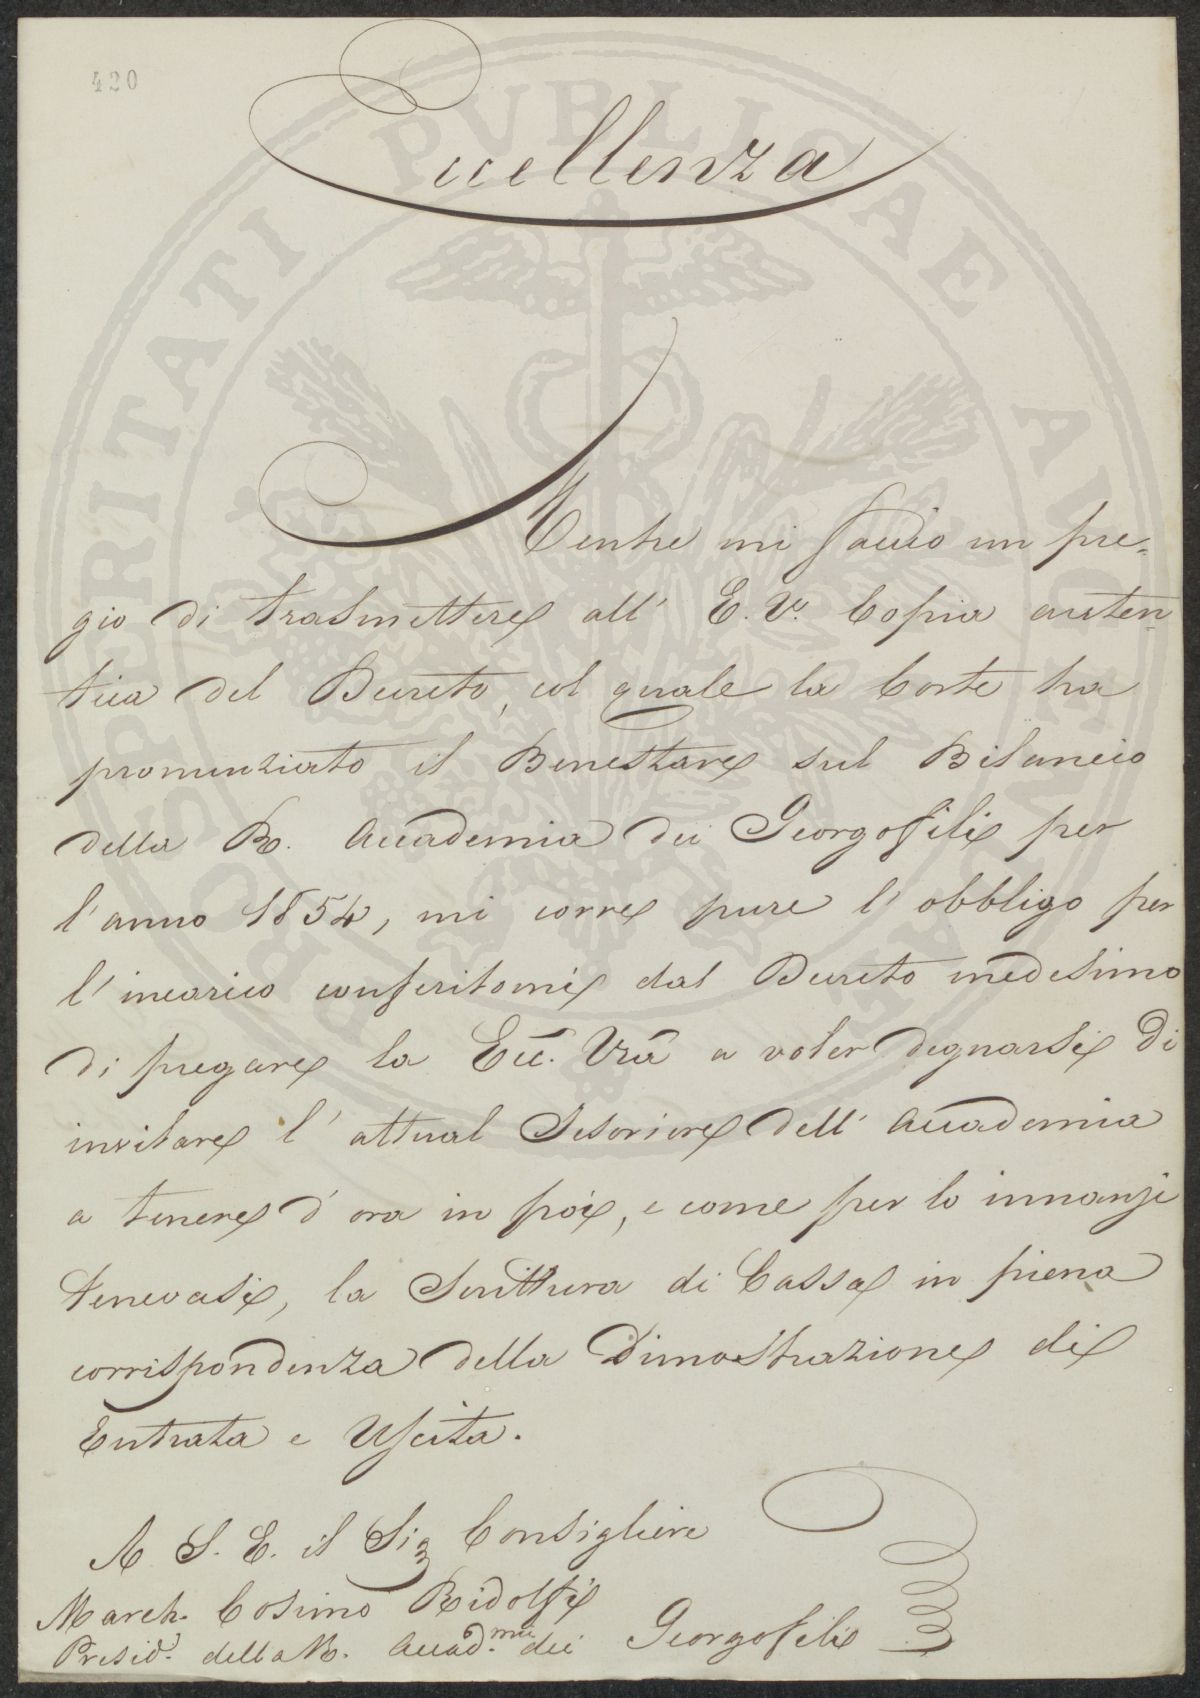 420
Eccellenza
Mentre mi faccio un pre-
gio di trasmettere all' E. V. Copia auten-
tica del Decreto, col quale la Corte ha
pronunziato il Benestare sul Bilancio
della R. Accademia dei Georgofili per
l'anno 1854, mi corre pure l'obbligo per
l'incarico conferitomi dal Decreto medesimo
di pregare la Ecc. Vra a voler degnarsi di
invitare l'attual Tesoriere dell'Accademia
a tenere d'ora in poi, e come per lo innanzi
tenevasi, la Scrittura di Cassa in piena
corrispondenza della Dimostrazione di
Entrata e Uscita.
A S. E. il Sig Consigliere
March. Cosimo Ridolfi
Presid. della R. Accad.mia dei Georgofili
PROSPERITATI PVBLICAE AVGENDAE